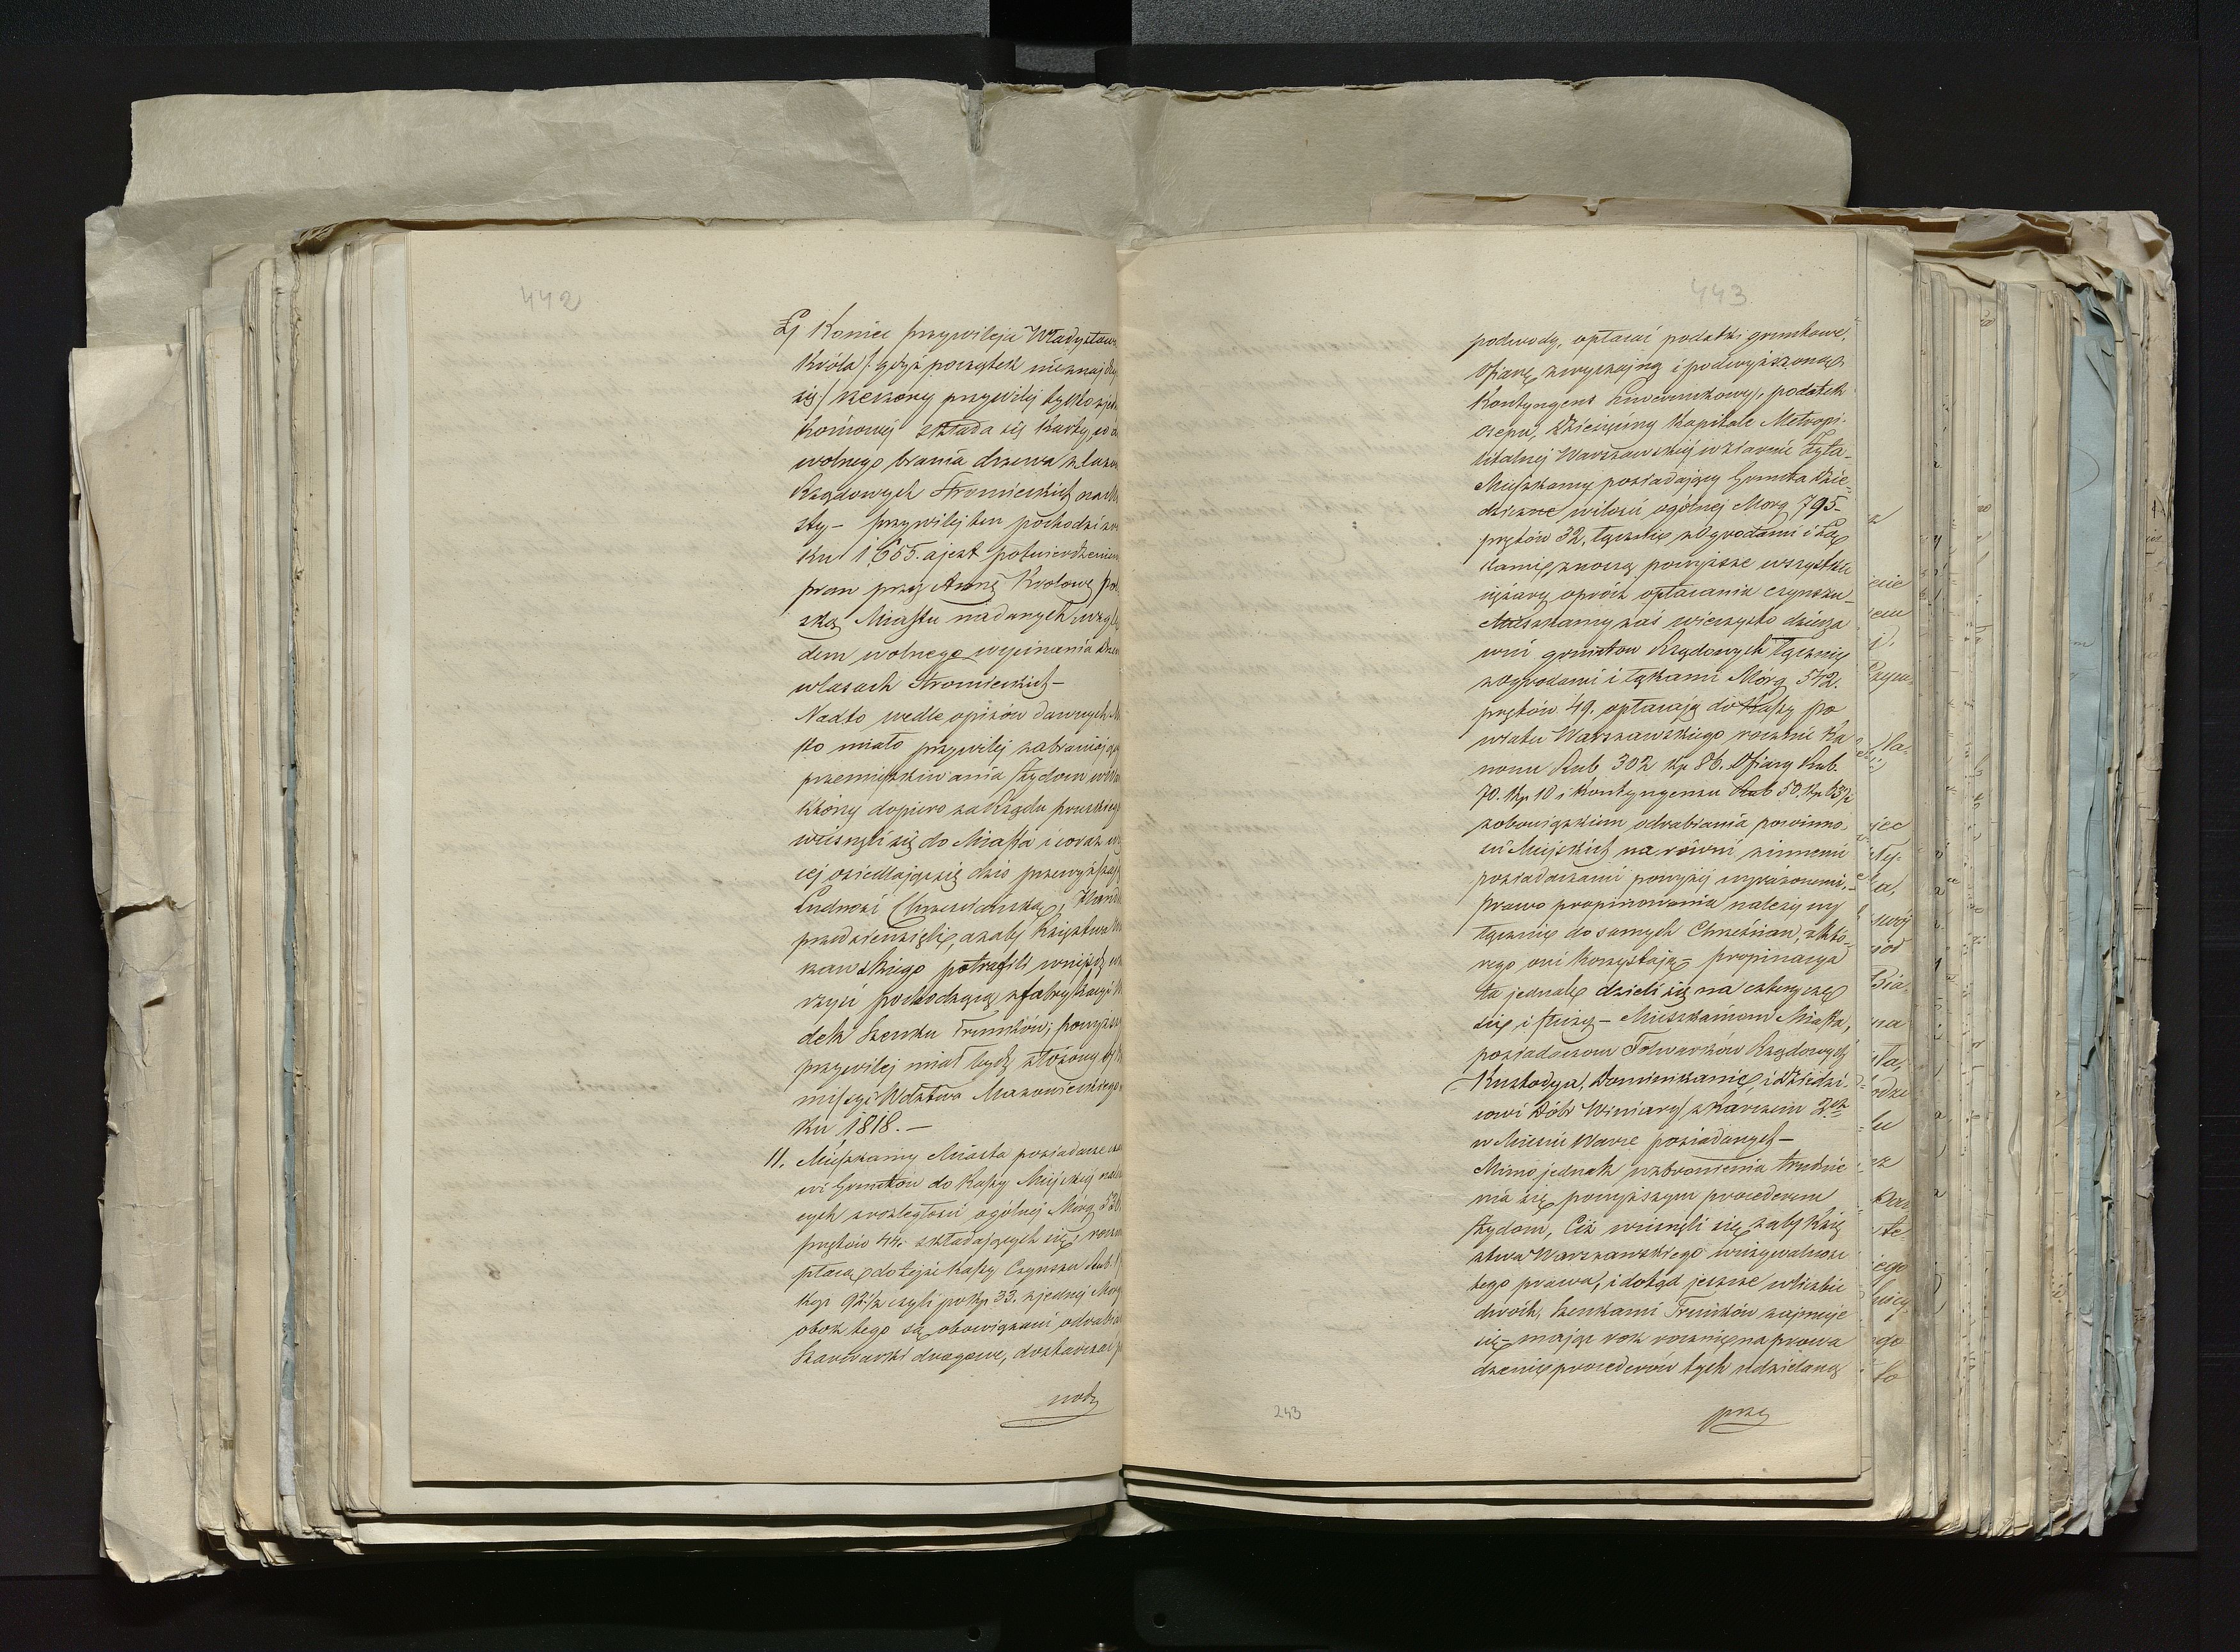 442
Ł/ Koniec przywileju Władysława
Króla /: gdyż początek nieznajduje
się :/ szczery przywilej tylko z jednej
końcowej składa się karty, co do
wolnego brania drzewa z lasów
Rządowych Stromieckich oraz
sty – przywilej ten pochodzi z ro
ku 1655. a jest potwierdzeniem
praw przez Annę Królowę pol
ską Miastu nadanych wzglę
dem wolnego wycinania drzew
w lasach Stromieckich –
Nadto wedle opisów dawnych Mia
sto miało przywilej zabraniający
przemieszkiwania Żydom w Mieście
którzy dopiero za Rządu pruskiego
wcisnęli się do Miasta i coraz wię
cej osiedlając się dziś przewyższają
Ludność Chrześciańską, Handel
przedsiewzięli, a za by Księstwa War
szawskiego potrafili wnijść w u
życie pochodzącą z fabrykacyi
dek Szenku Trunków; powyższy
przywilej miał być złożony by Ko
missyi Wdztwa Mazowieckiego w ro
ku 1818. –
11. Mieszkańcy Miasta posiadacze
wi Gruntów do Kassy Miejskiej należą
cych z rozległości ogólnej Mórg 526.
prętów 44. składających się, rocznie
płacą do tejże Kassy Czynszu Rub.
kop 92½ czyli po kp 33. z jednej Morgi
obok tego są obowiązani odrabiać
Szarwarki drogowe, dostarczać po
wody
443
podwody, opłacać podatki gruntowe,
Ofiarę zwyczajną i podwyższoną,
Kontyngens Liwerunkowy, podatek
osepu, Dziesięcinę Kapitule Metropo-
litalnej Warszawskiej w ziarnie Żyta –
Mieszkańcy posiadający Grunta dzie-
dziczne w ilości ogólnej Morg 795.
prętów 32, łącznie z Ogrodami i Łą
kami, znoszą powyższe wszystkie
ciężary oprócz opłacania czynszu –
Mieszkańcy zaś wieczyści dzierża
wcy gruntów Rządowych łącznie
z ogrodami i łąkami Mórg 542.
prętów 49. opłacają do Kassy po
wiatu Warszawskiego rocznie Ka
nonu Rub 302 kp 86. Ofiary Rub.
70. kp 10 i Kontyngensu Rub 50. kp 63½
z obowiązkiem odrabiania powinno-
ści Miejskich na równi z innemi
posiadaczami powyżej wyrażonemi. –
Prawo propinowania należy wy
łącznie do samych Chrześcian, z któ-
rego oni korzystają – propinacya
ta jednak dzieli się na cztery czę
ści i służy – Mieszkańcom Miasta,
posiadaczom Folwarków Rządowych
Kustodya, Dominikanie, i Dziedzi-
cowi Dóbr Winiary z karczem 2ch
w Mieście Warce posiadanych –
Mimo jednak wzbronienia trudnie
nia się powyższym procederem
Żydom, Ciż wcisnęli się za by Księ
stwa Warszawskiego w używalność
tego prawa, i dotąd jeszcze w liczbie
dwóch, szenkami Trunków zajmuje
się – mając rok rocznie na prowa
dzenie procederów tych udzielaną
przy
243